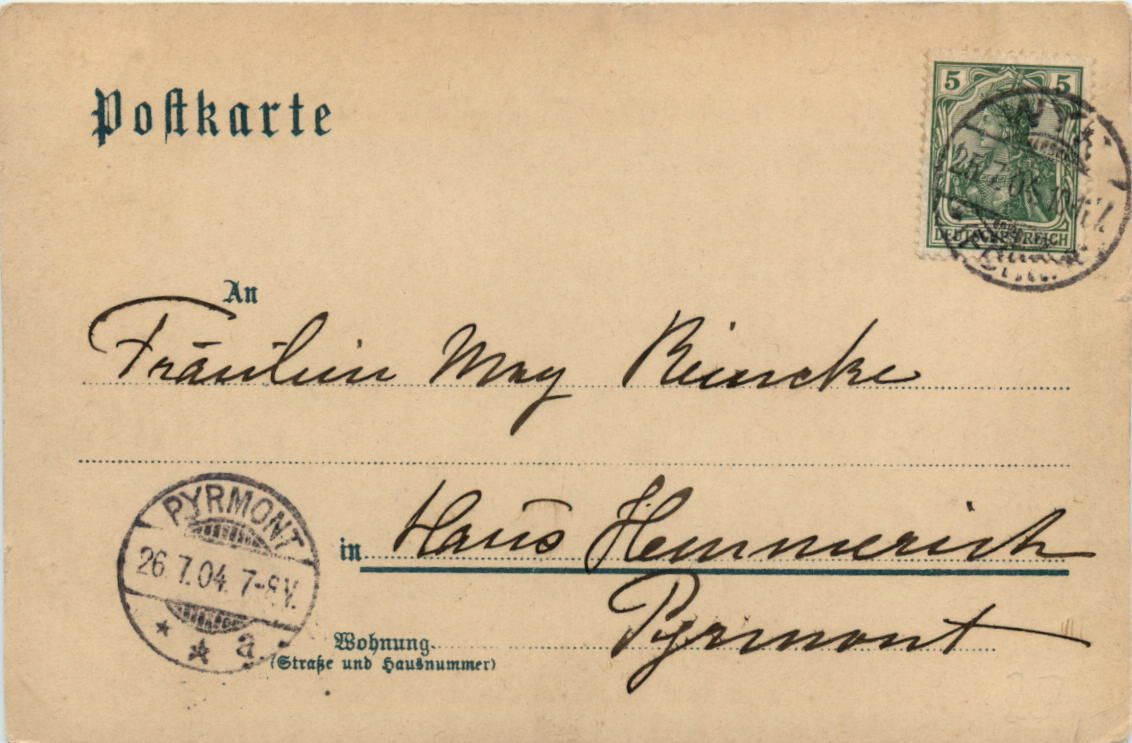 Postkarte
5 5
DEUTSCHES REICH
WYK
25.7.04
An
Fräulein May Reincke
in Haus Hemmerich
Pyrmont
PYRMONT
26.7.04. 7-8V.
* * a *
Wohnung
(Straße und Hausnummer)